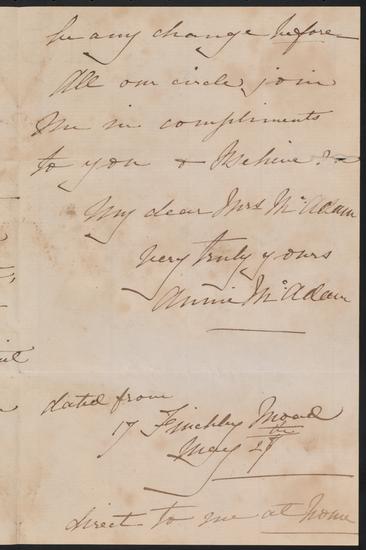 be any change before
All our circle join
me in compliments
to you &
My dear Mrs McAdam
very truly yours
Annie McAdam
dated from
17 Finchley Road
May 27th
direct to me at home